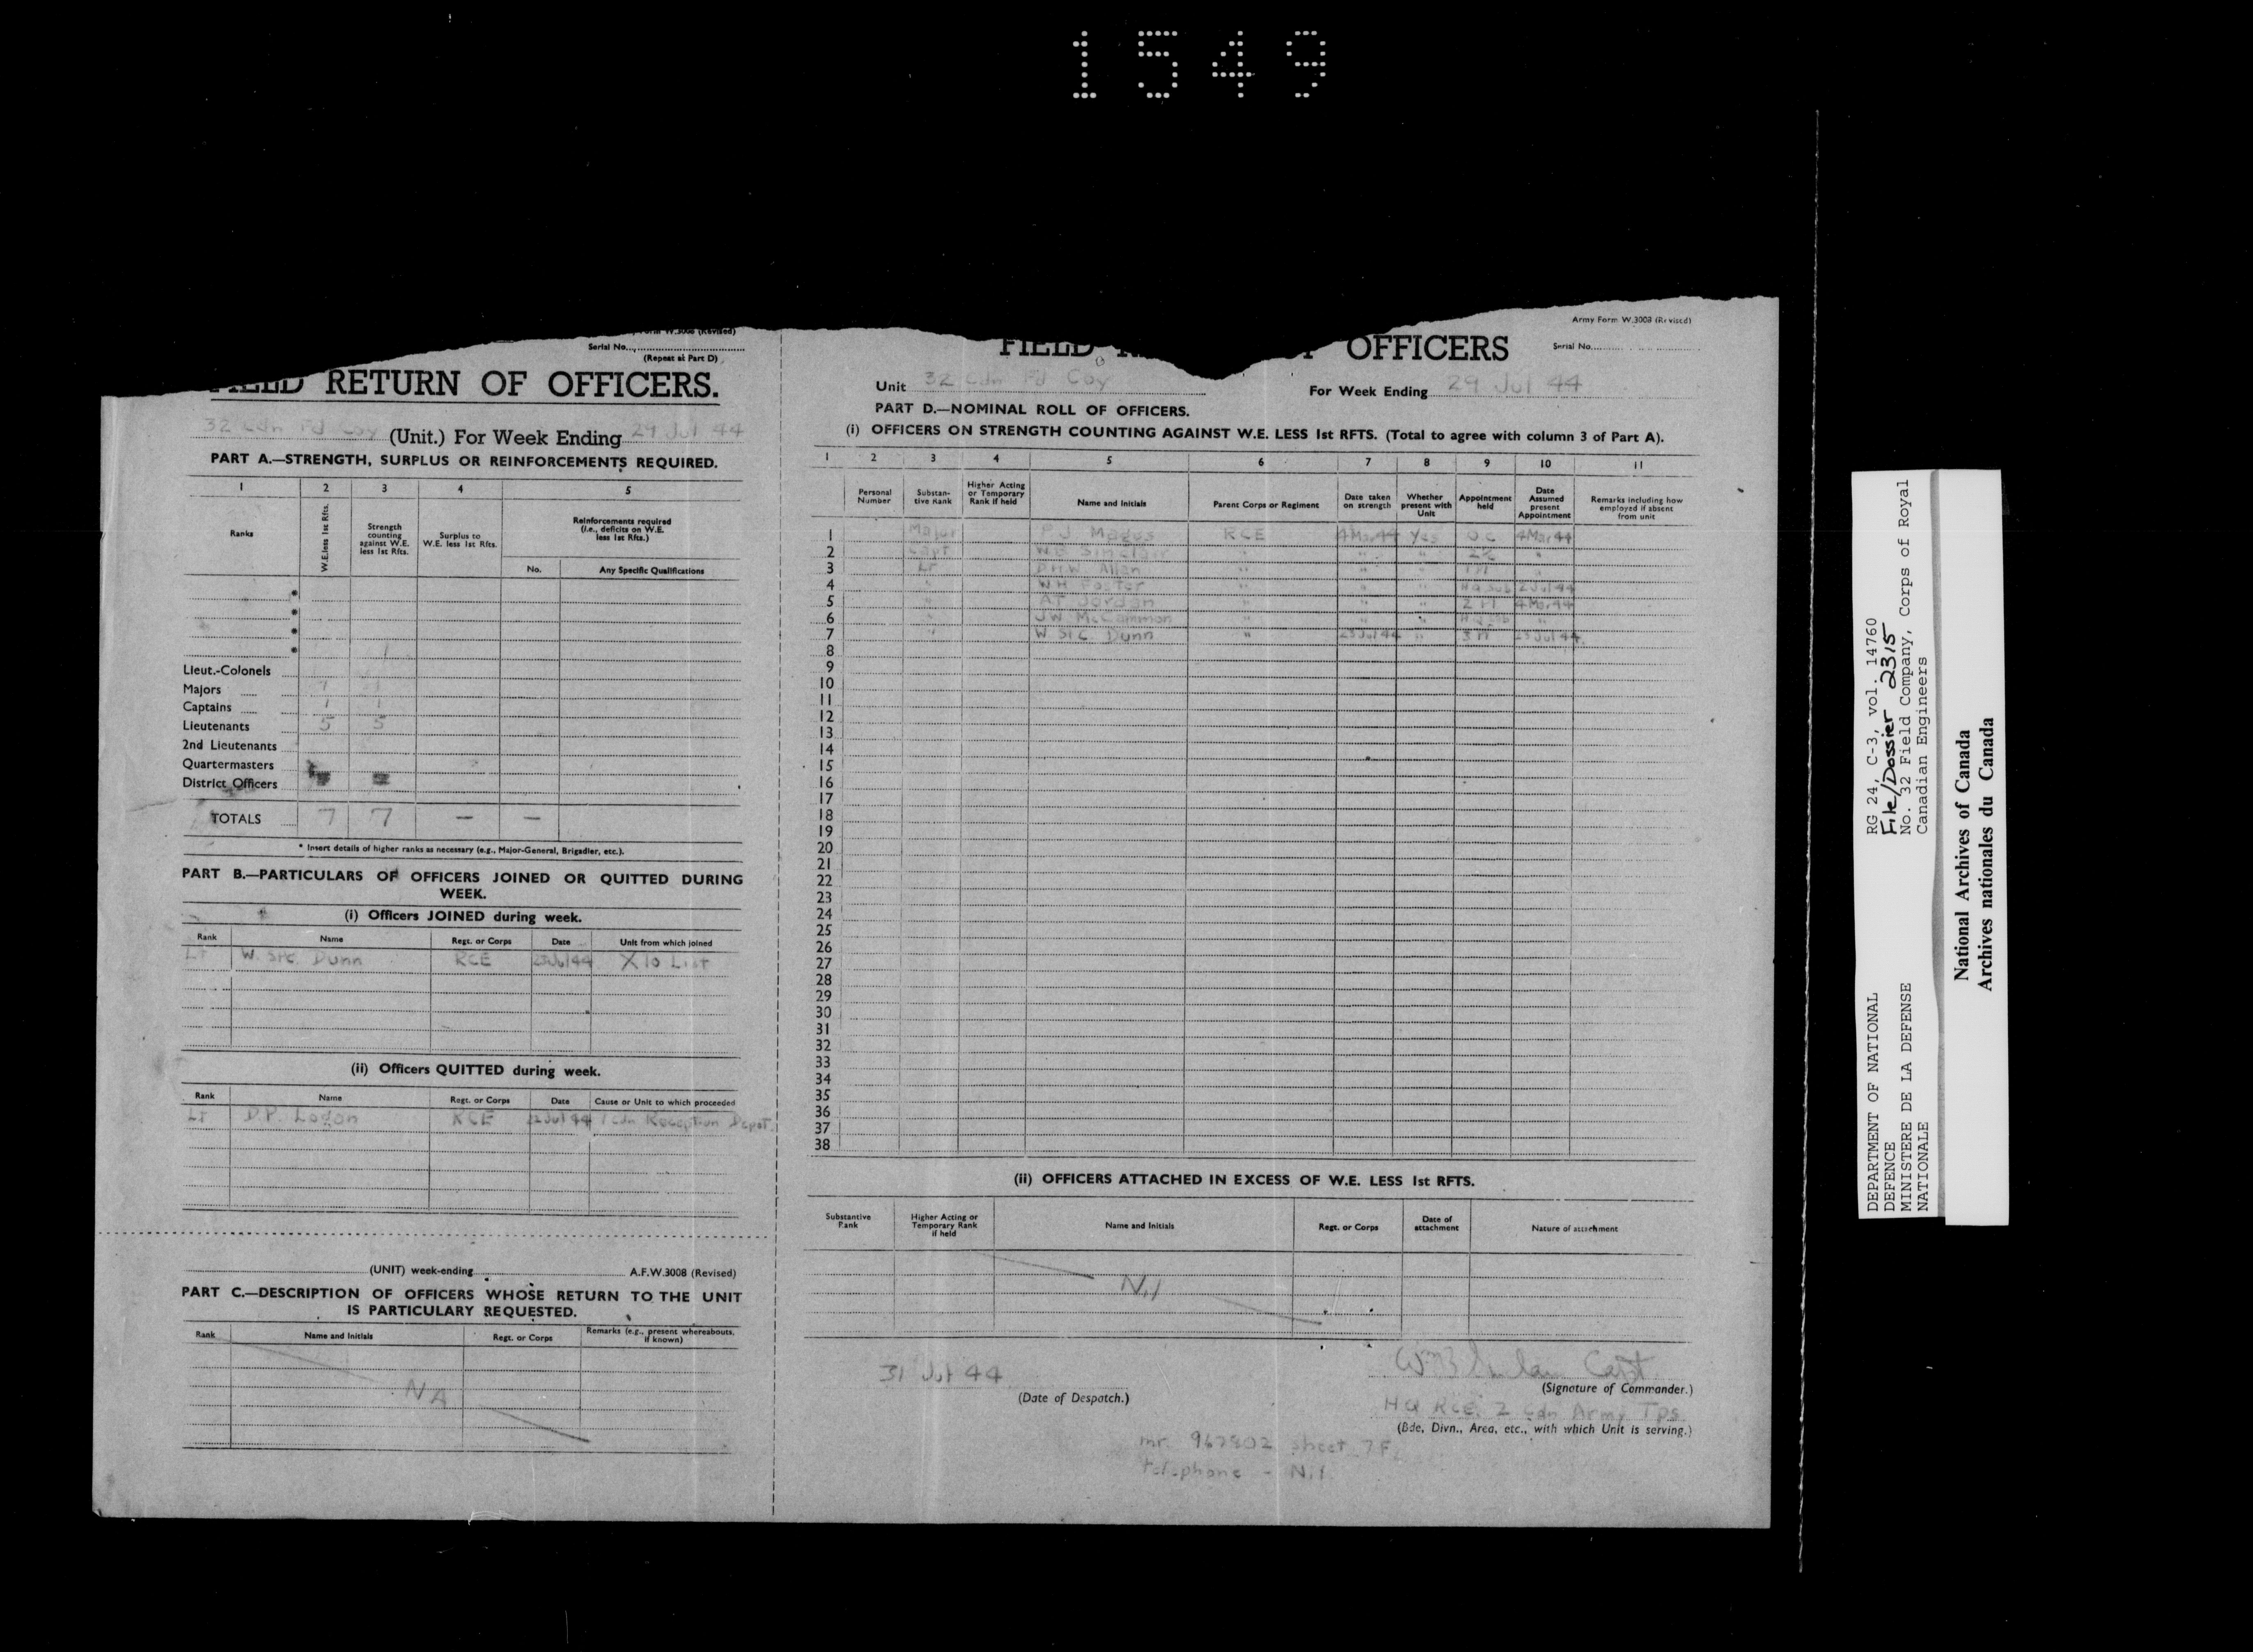 1549
Form W.3008 (Revised)
Serial No.
(Repeat at Part D)
FIELD RETURN OF OFFICERS.
32 Cdn Fd Coy (Unit.) For Week Ending 29 Jul 44
PART A.—STRENGTH, SURPLUS OR REINFORCEMENTS REQUIRED.
1 2 3 4 5
Ranks
W.E. less 1st Rfts.
Strength counting against W.E. less 1st Rfts.
Surplus to W.E. less 1st Rfts.
Reinforcements required (i.e., deficits on W.E. less 1st Rfts.)
No. Any Specific Qualifications
Lieut.-Colonels
Majors 1 1
Captains 1 1
Lieutenants 5 5
2nd Lieutenants
Quartermasters
District Officers
TOTALS 7 7 — —
* Insert details of higher ranks as necessary (e.g., Major-General, Brigadier, etc.).
PART B.—PARTICULARS OF OFFICERS JOINED OR QUITTED DURING
WEEK.
(i) Officers JOINED during week.
Rank Name Regt. or Corps Date Unit from which joined
Lt W. St C. Dunn RCE 23 Jul 44 X 10 List
(ii) Officers QUITTED during week.
Rank Name Regt. or Corps Date Cause or Unit to which proceeded
Lt D.P. Logan RCE 22 Jul 44 1 Cdn Reception Depot.
(UNIT) week-ending A.F.W.3008 (Revised)
PART C.—DESCRIPTION OF OFFICERS WHOSE RETURN TO THE UNIT
IS PARTICULARY REQUESTED.
Rank Name and Initials Regt. or Corps Remarks (e.g., present whereabouts, if known)
NA
Army Form W.3008 (Revised)
FIELD OFFICERS
Serial No.
Unit 32 Cdn Fd Coy For Week Ending 29 Jul 44
PART D.—NOMINAL ROLL OF OFFICERS.
(i) OFFICERS ON STRENGTH COUNTING AGAINST W.E. LESS 1st RFTS. (Total to agree with column 3 of Part A).
1 2 3 4 5 6 7 8 9 10 11
Personal Number
Substantive Rank
Higher Acting or Temporary Rank if held
Name and Initials
Parent Corps or Regiment
Date taken on strength
Whether present with Unit
Appointment held
Date Assumed present Appointment
Remarks including how employed if absent from unit
1 Major RCE 4 Mar 44 Yes OC 4 Mar 44
2 Capt W.B. Sinclair " " " 2IC "
3 Lt Allen " " " "
4 " WH Foster " " " 2 Jul 44
5 " AT Jordan " " " 4 Mar 44
6 " JW McCammon " " "
7 " W St C. Dunn " 23 Jul 44 " 23 Jul 44
8
9
10
11
12
13
14
15
16
17
18
19
20
21
22
23
24
25
26
27
28
29
30
31
32
33
34
35
36
37
38
(ii) OFFICERS ATTACHED IN EXCESS OF W.E. LESS 1st RFTS.
Substantive Rank
Higher Acting or Temporary Rank if held
Name and Initials
Regt. or Corps
Date of attachment
Nature of attachment
Nil
31 Jul 44
(Date of Despatch.)
Capt
(Signature of Commander.)
HQ RCE. 2 Cdn Army Tps
(Bde, Divn., Area, etc., with which Unit is serving.)
mr. 967802 sheet 7F
telephone - Nil
DEPARTMENT OF NATIONAL RG 24, C-3, vol. 14760
DEFENCE File/Dossier 2315
MINISTERE DE LA DEFENSE No. 32 Field Company, Corps of Royal
NATIONALE Canadian Engineers
National Archives of Canada
Archives nationales du Canada